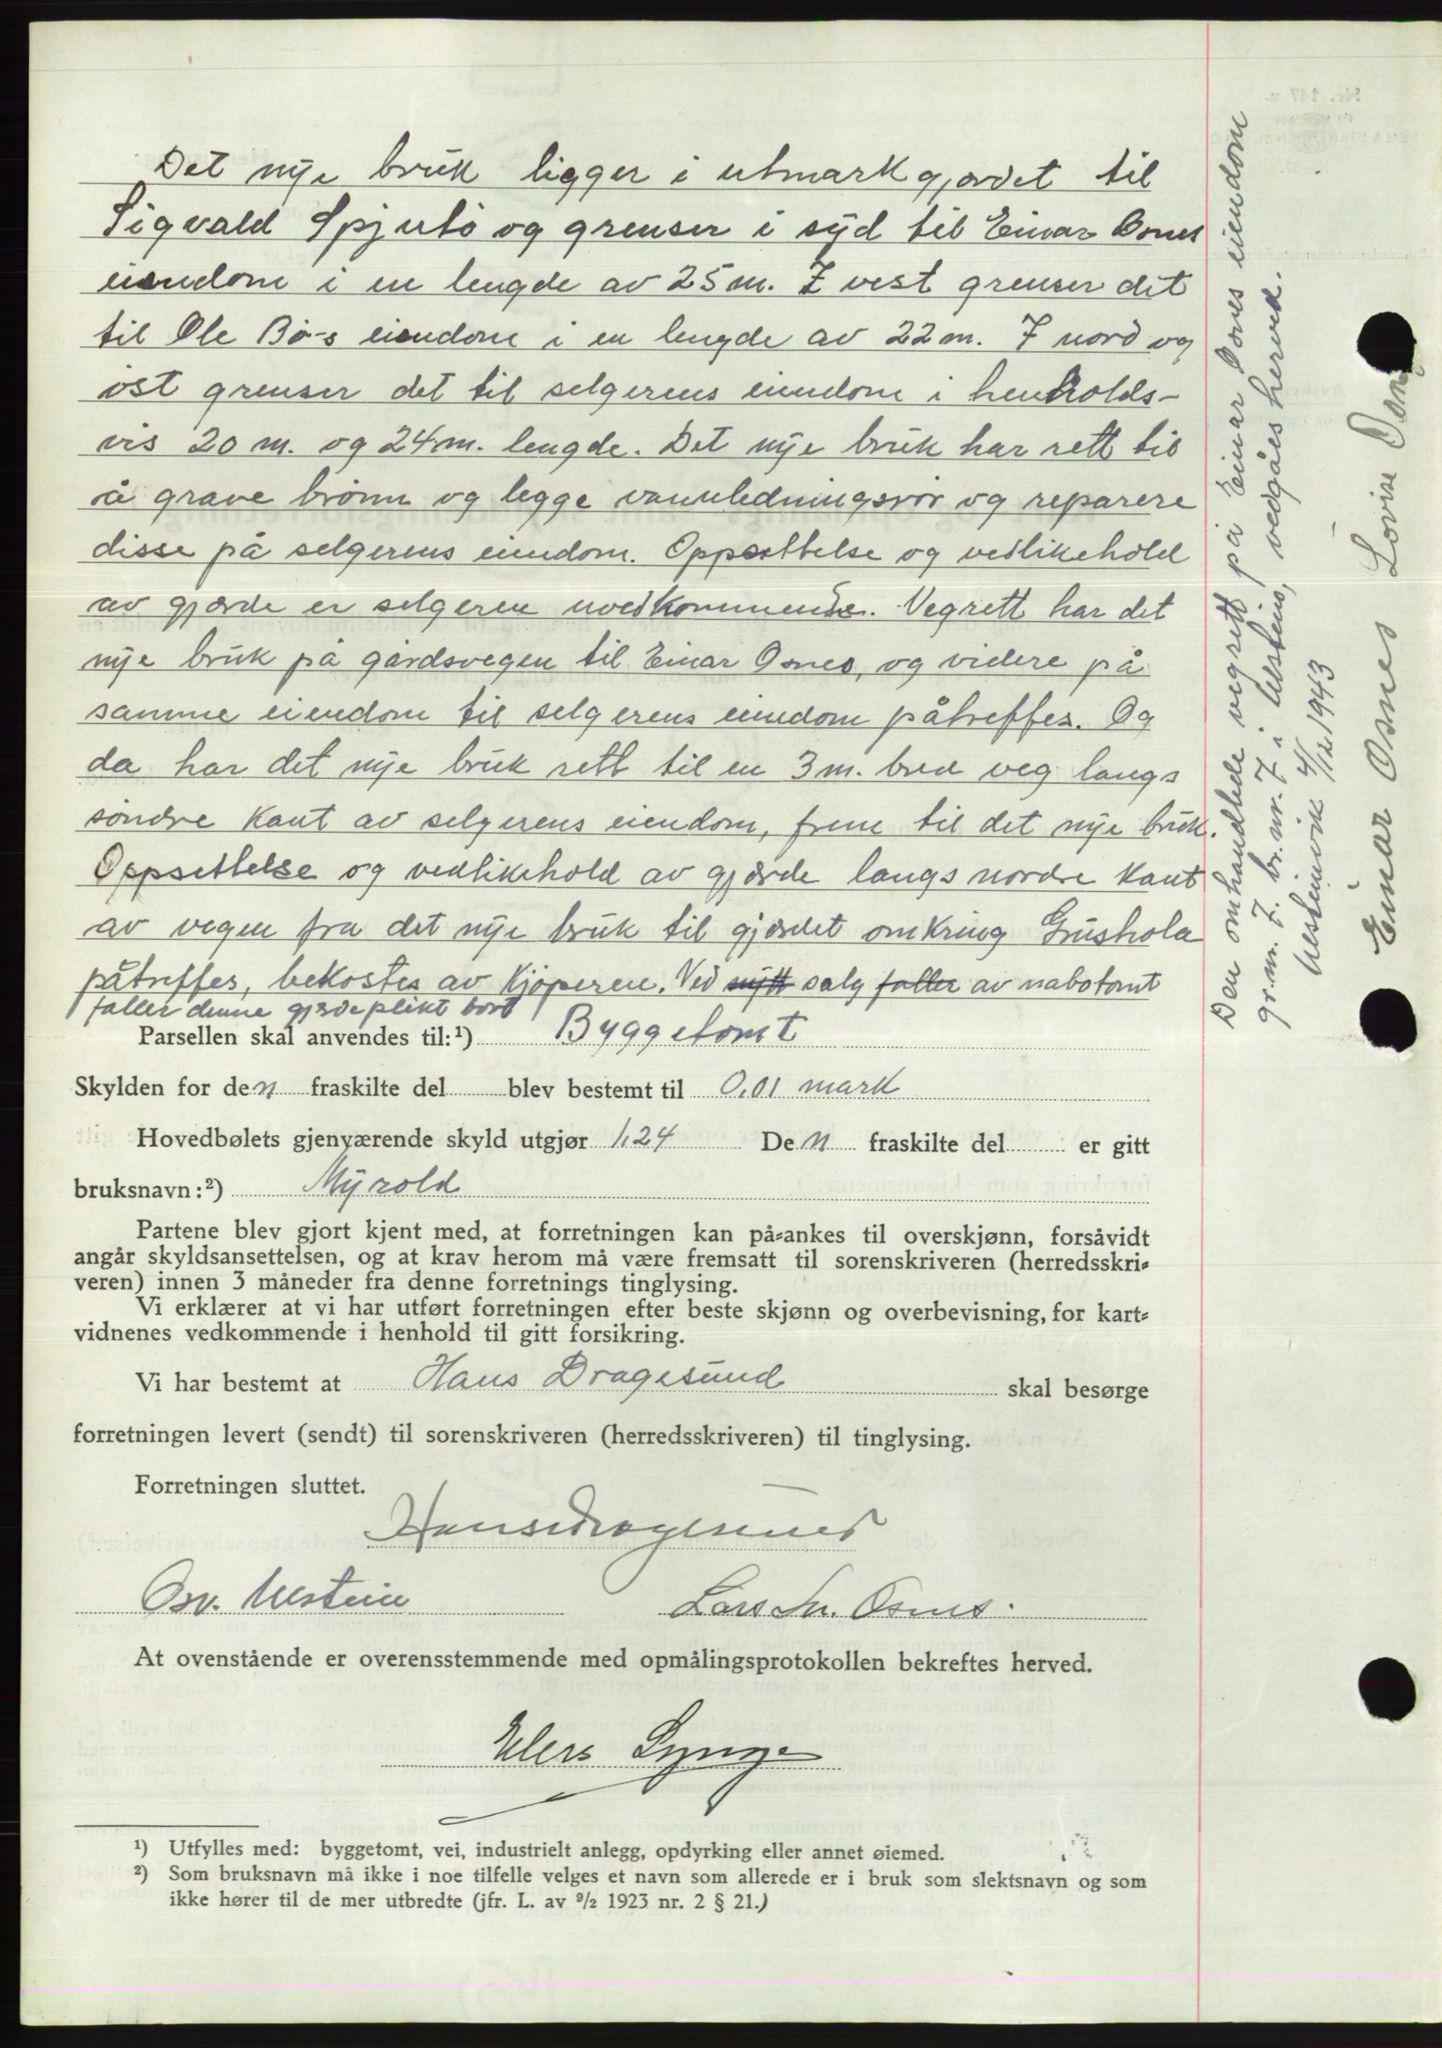 Det nye bruk ligger i utmarkgjerdet til
Sigvald Spjutö og grenser i syd til Einar Osnes
eiendom i en lengde av 25 m. I vest grenser det
til Ole Bö-s eiendom i en lengde av 22 m. I nord og
öst grenser det til selgerens eiendom i henholds-
vis 20 m. og 24 m. lengde. Det nye bruk har rett til
å grave brönn og legge vannledningsrör og reparere
disse på selgerens eiendom. Oppsettelse og vedlikehold
av gjerde er selgeren uvedkommende. Vegrett har det
nye bruk på gårdsvegen til Einar Osnes, og videre på
samme eiendom til selgerens eiendom påtreffes. Og
da har det nye bruk rett til en 3 m. bred veg langs
söndre kant av selgerens eiendom, frem til det nye bruk.
Oppsettelse og vedlikehold av gjerde langs nordre kant
av vegen fra det nye bruk til gjerdet omkring Grushola
påtreffes, bekostes av kjöperen. Ved nytt salg faller av nabotomt
faller denne gjerdeplikt bort
Parsellen skal anvendes til:¹) Byggetomt
Skylden for den fraskilte del blev bestemt til 0,01 mark
Hovedbølets gjenværende skyld utgjør 1,24 Den fraskilte del er gitt
bruksnavn:²) Myrold
Partene blev gjort kjent med, at forretningen kan på-ankes til overskjønn, forsåvidt
angår skyldsansettelsen, og at krav herom må være fremsatt til sorenskriveren (herredsskri-
veren) innen 3 måneder fra denne forretnings tinglysing.
Vi erklærer at vi har utført forretningen efter beste skjønn og overbevisning, for kart-
vidnenes vedkommende i henhold til gitt forsikring.
Vi har bestemt at Hans Dragesund skal besørge
forretningen levert (sendt) til sorenskriveren (herredsskriveren) til tinglysing.
Forretningen sluttet.
Hans Dragesund
Osv. Ulstein Lars Osnes.
At ovenstående er overensstemmende med opmålingsprotokollen bekreftes herved.
Elers Synge
¹) Utfylles med: byggetomt, vei, industrielt anlegg, opdyrking eller annet øiemed.
²) Som bruksnavn må ikke i noe tilfelle velges et navn som allerede er i bruk som slektsnavn og som
ikke hører til de mer utbredte (jfr. L. av 9/2 1923 nr. 2 § 21.)
Den omhandlede vegrett på Einar Osnes eiendom
gr.nr. 7. br.nr. 7 i Ulstein, vedgåes herved.
Ulsteinvik 4/12 1943
Einar Osnes Lovise Osnes